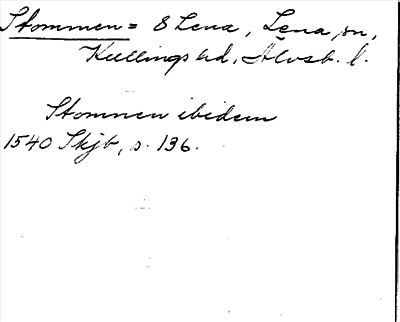 Stommen = 8 Lena, Lena sn,
Kullings hd, Älvsb. l.
Stommen ibidem
1540 Skjb, s. 136.